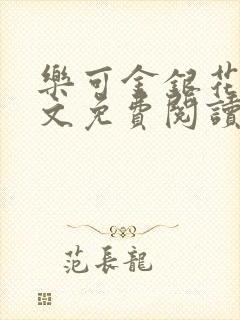 樂可金銀花
文免費閱讀
范長龍